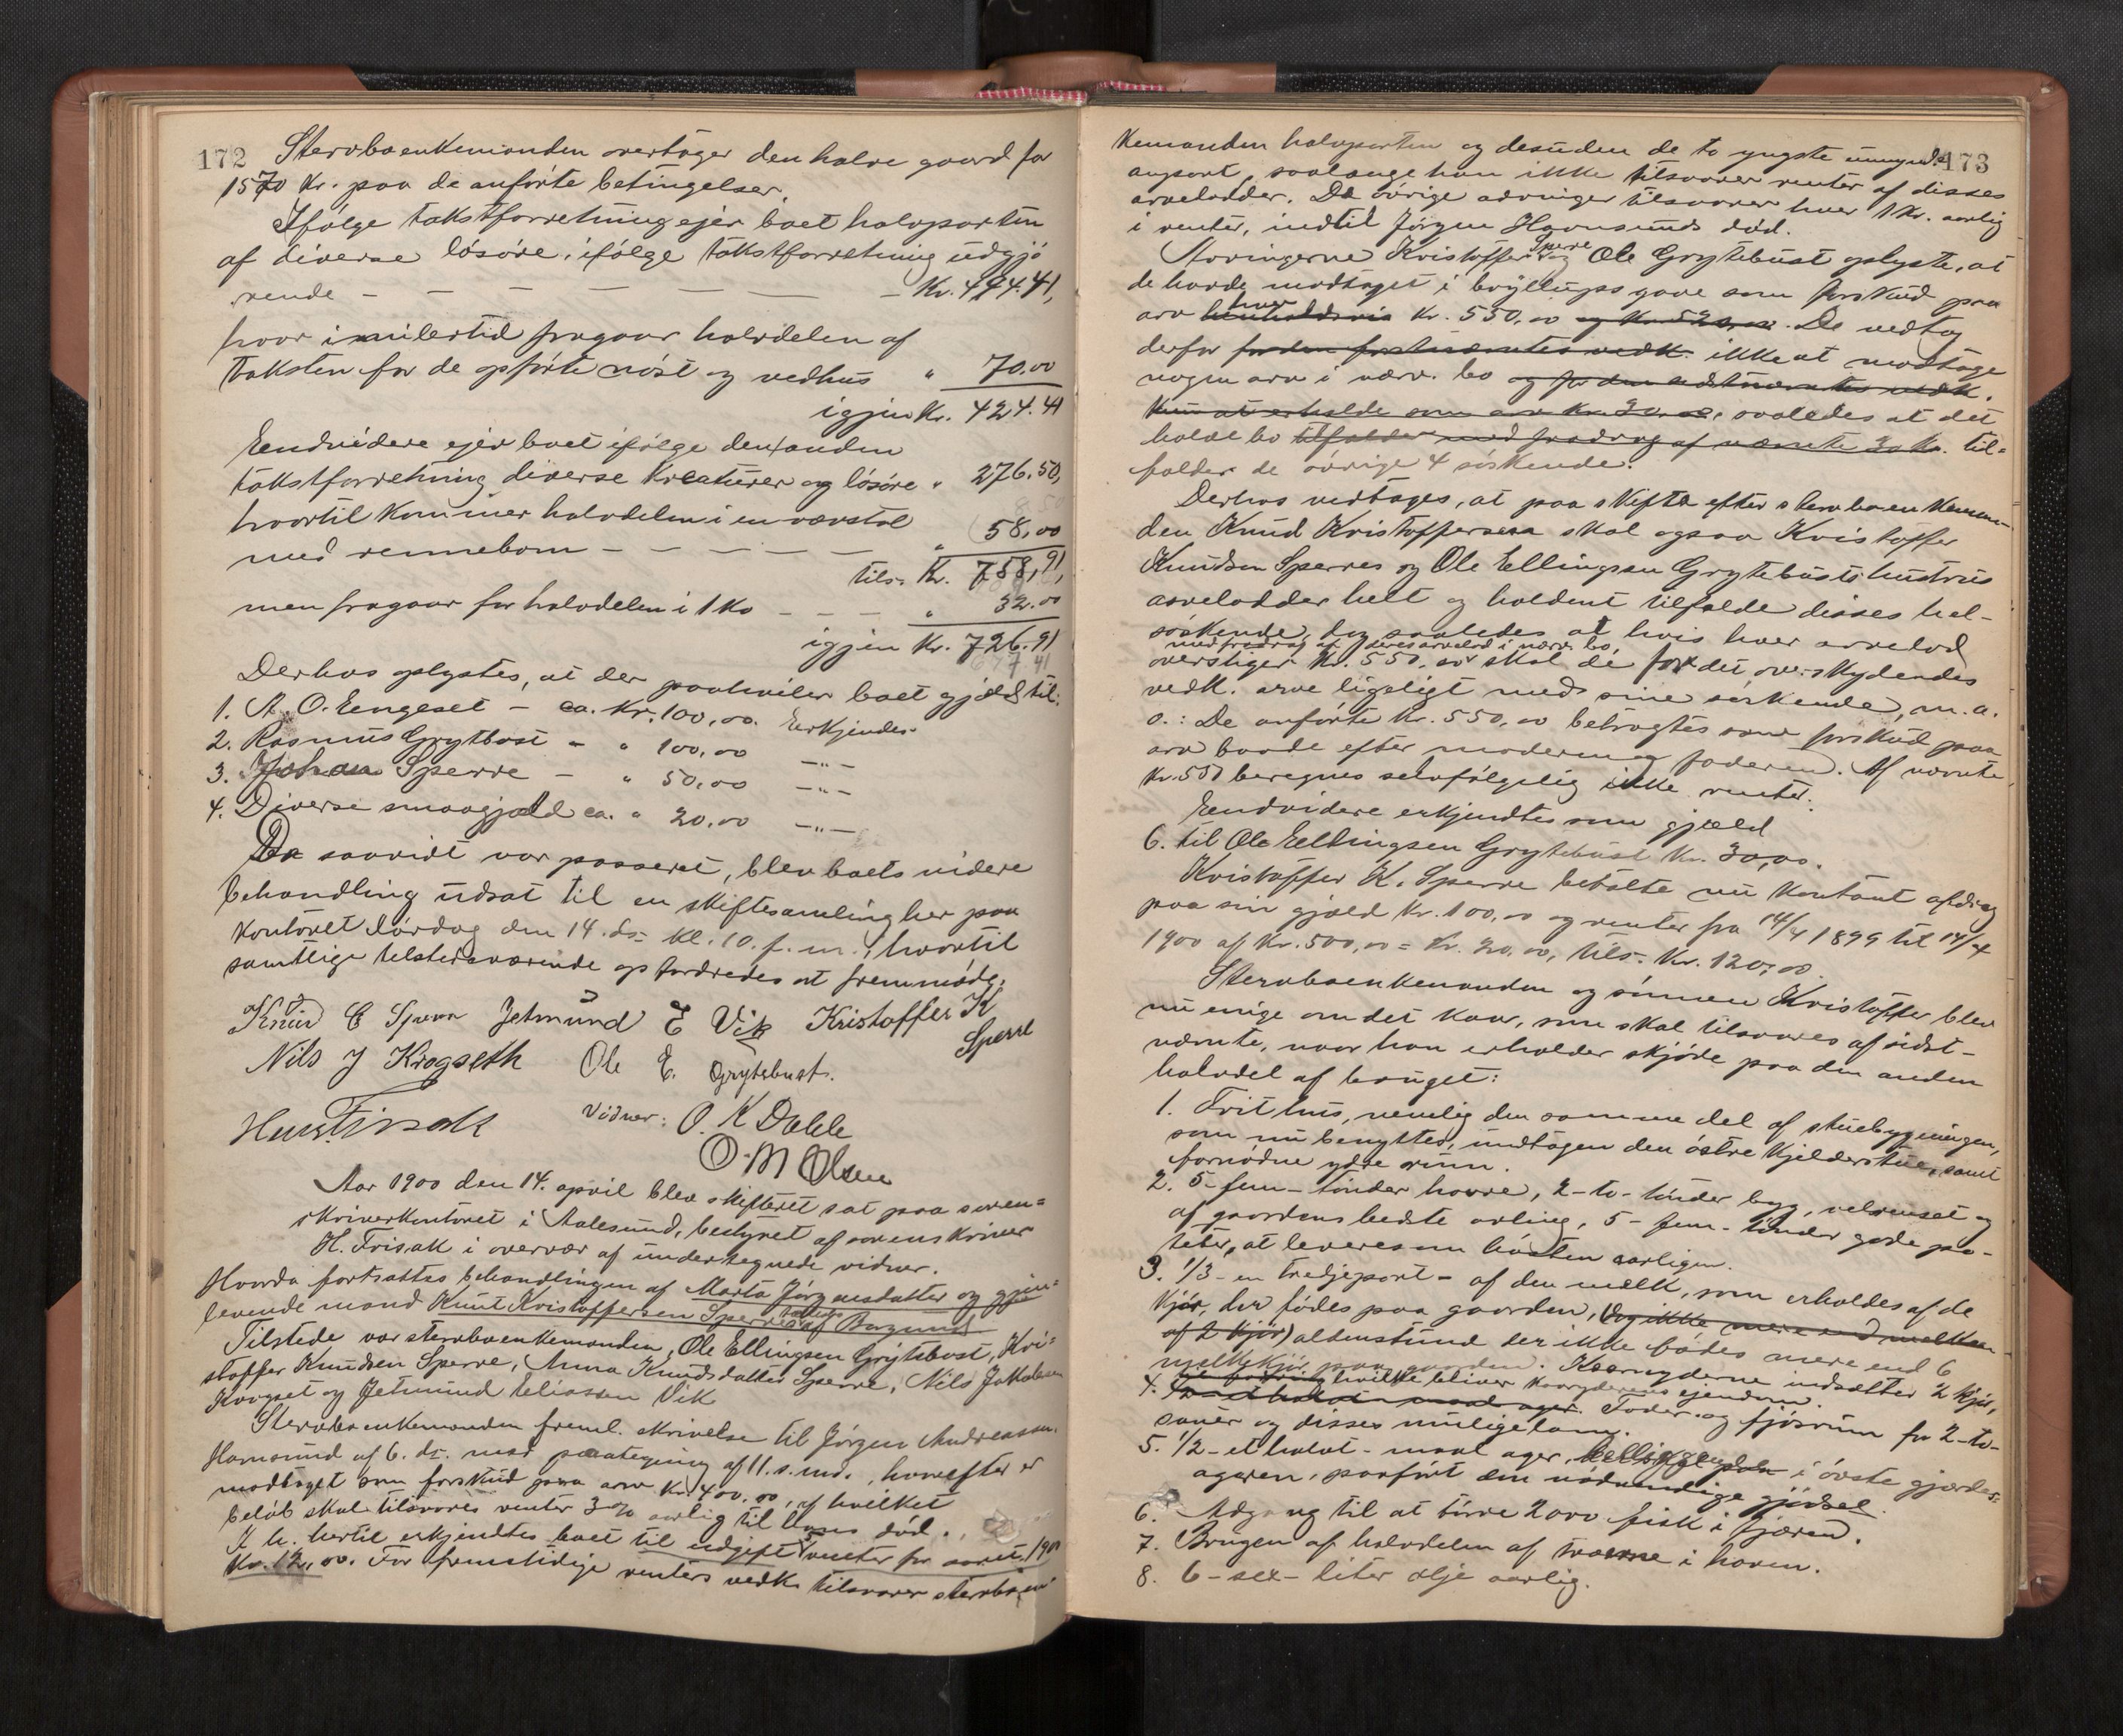 172
Stervboenkemanden overtager den halve gaard for
1570 Kr. paa de anførte betingelser.
Ifølge takstforretning ejer boet halvparten
af diverse løsøre, ifølge takstforretning udgjø
rende - - - - - - Kr. 494.41,
hvor imidlertid fragaar halvdelen af
taksten for de opførte nøst og vedhus " 70.00
igjen Kr. 424.41
Endvidere ejer boet ifølge den anden
takstforretning diverse kreaturer og løsøre " 276.50,
hvortil kommer halvdelen i en vævstol
med rennebom - - - - - " 58,00
tils. Kr. 758,91,
men fragaar for halvdelen i 1 ko - - - " 32.00
igjen Kr. 726.91
677 41
Derhos oplystes, at der paahviler boet gjæld til:
1. A. O. Engeset - ca. Kr. 100,00. Erkjendes.
2. Rasmus Grytbust - " 100,00 -"-
3. Johan Sperre - " 50,00 -"-
4. Diverse smaagjæld ca. " 20,00 -"-
Da saavidt var passeret, blev boets videre
behandling udsat til en skiftesamling her paa
kontoret Lørdag den 14. ds. kl. 10. f. m., hvortil
samtlige tilstedeværende opfordredes at fremmøde.
Knud C Sperre Jetmund E Vik Kristoffer K
Sperre
Nils J Krogseth Ole E. Grytebust.
H. Frisak Vidner: O. K Dahle
O. M Olsen
Aar 1900 den 14. april blev skifteret sat paa soren=
skriverkontoret i Aalesund, bestyret af sorenskriver
H. Frisak i overvær af undertegnede vidner.
Hvorda fortsattes behandlingen af Marta Jørgensdatter og gjen=
levende mand Knut Kristoffersen Sperres af Borgund
Tilstede var stervboenkemanden, Ole Ellingsen Grytebust, Kri=
stoffer Knudsen Sperre, Anna Knudsdatter Sperre, Nils Jakobsen
Krogset og Jetmund Eliassen Vik
Stervboenkemanden freml. skrivelse til Jørgen Andreassen
Havnsund af 6. ds. med paategning af 11. s. md., hvorefter er
modtaget som forskud paa arv Kr. 400,00, af hvilket
beløb skal tilsvares renter 3% aarlig til hans død.
I h. hertil erkjendtes boet til udgift renter for aaret 1900
Kr. 12,00. For fremtidige renters vedk. tilsvarer stervboen
173
kemanden halvparten og desuden de to yngste umynd.s
anpart, saalænge han ikke tilsvarer renter af disses
arvelodder. De øvrige arvinger tilsvarer hver 1 Kr. aarlig
i renter, indtil Jørgen Havnsunds død.
Arvingerne Kristoffer Sperre og Ole Grytebust oplyste, at
de havde modtaget i bryllupsgave som forskud paa
arv henholdsvis hver Kr. 550,00 og Kr. 520,00. De vedtog
derfor for den førstnævntes vedk. ikke at modtage
nogen arv i nærv. bo og for den sidstnævntes vedk.
kun at erholde som arv Kr. 30,00, saaledes at det
halve bo tilfalder med fradrag af nævnte 30 Kr. til-
falder de øvrige 4 søskende.
Derhos vedtages, at paa skifte efter stervboenkeman-
den Knud Kristoffersen skal ogsaa Kristoffer
Knudsen Sperres og Ole Ellingsen Grytebusts hustrus
arvelodder helt og holdent tilfalde disses hel-
søskende, dog saaledes at hvis hver arvelod
med fradrag af deres arvelod i nærv. bo
overstiger Kr. 550,00 skal de for det overskydendes
vedk. arve ligeligt med sine søskende, m. a.
o.: De anførte Kr. 550,00 betragtes som forskud paa
arv baade efter moderen og faderen. Af nævnte
Kr. 550 beregnes selvfølgelig ikke renter.
Endvidere erkjendtes som gjæld
6. til Ole Ellingsen Grytebust Kr. 30,00.
Kristoffer K. Sperre betalte nu kontant afdrag
paa sin gjæld Kr. 100,00 og renter fra 14/4 1899 til 14/4
1900 af Kr. 500,00 = Kr. 20,00, tils. Kr. 120,00.
Stervboenkemanden og sønnen Kristoffer blev
nu enige om det kaar, som skal tilsvares af sidst-
nævnte, naar han erholder skjøde paa den anden
halvdel af bruget:
1. Frit hus, nemlig den samme del af stuebygningen,
som nu benyttes, undtagen den østre kjelderstue, samt
fornødne ydre rum.
2. 5- fem - tønder havre, 2 - to - tønder byg, velrenset og
af gaardens bedste avling, 5 - fem - tønder gode po-
teter, at leveres om høsten aarligen.
3. 1/3 - en tredjepart - af den melk, som erholdes af de
kjør, der fødes paa gaarden, (dog ikke mere end melken
af 2 kjør) altenstund der ikke fødes mere end 6
melkekjør paa gaarden. Kaarnyderne indsætter 2 kjør,
hvilke bliver kaaryderens ejendom.
4. Foder og fjøsrum for 2 - to -
sauer og disses mulige lam.
5. 1/2 - et halvt - maal ager, i øvste gjærdes-
ageren, paaført den nødvendige gjødsel.
6. Adgang til at tørre 2000 fisk i fjæren.
7. Brugen af halvdelen af træerne i haven.
8. 6 - sex - liter olje aarlig.